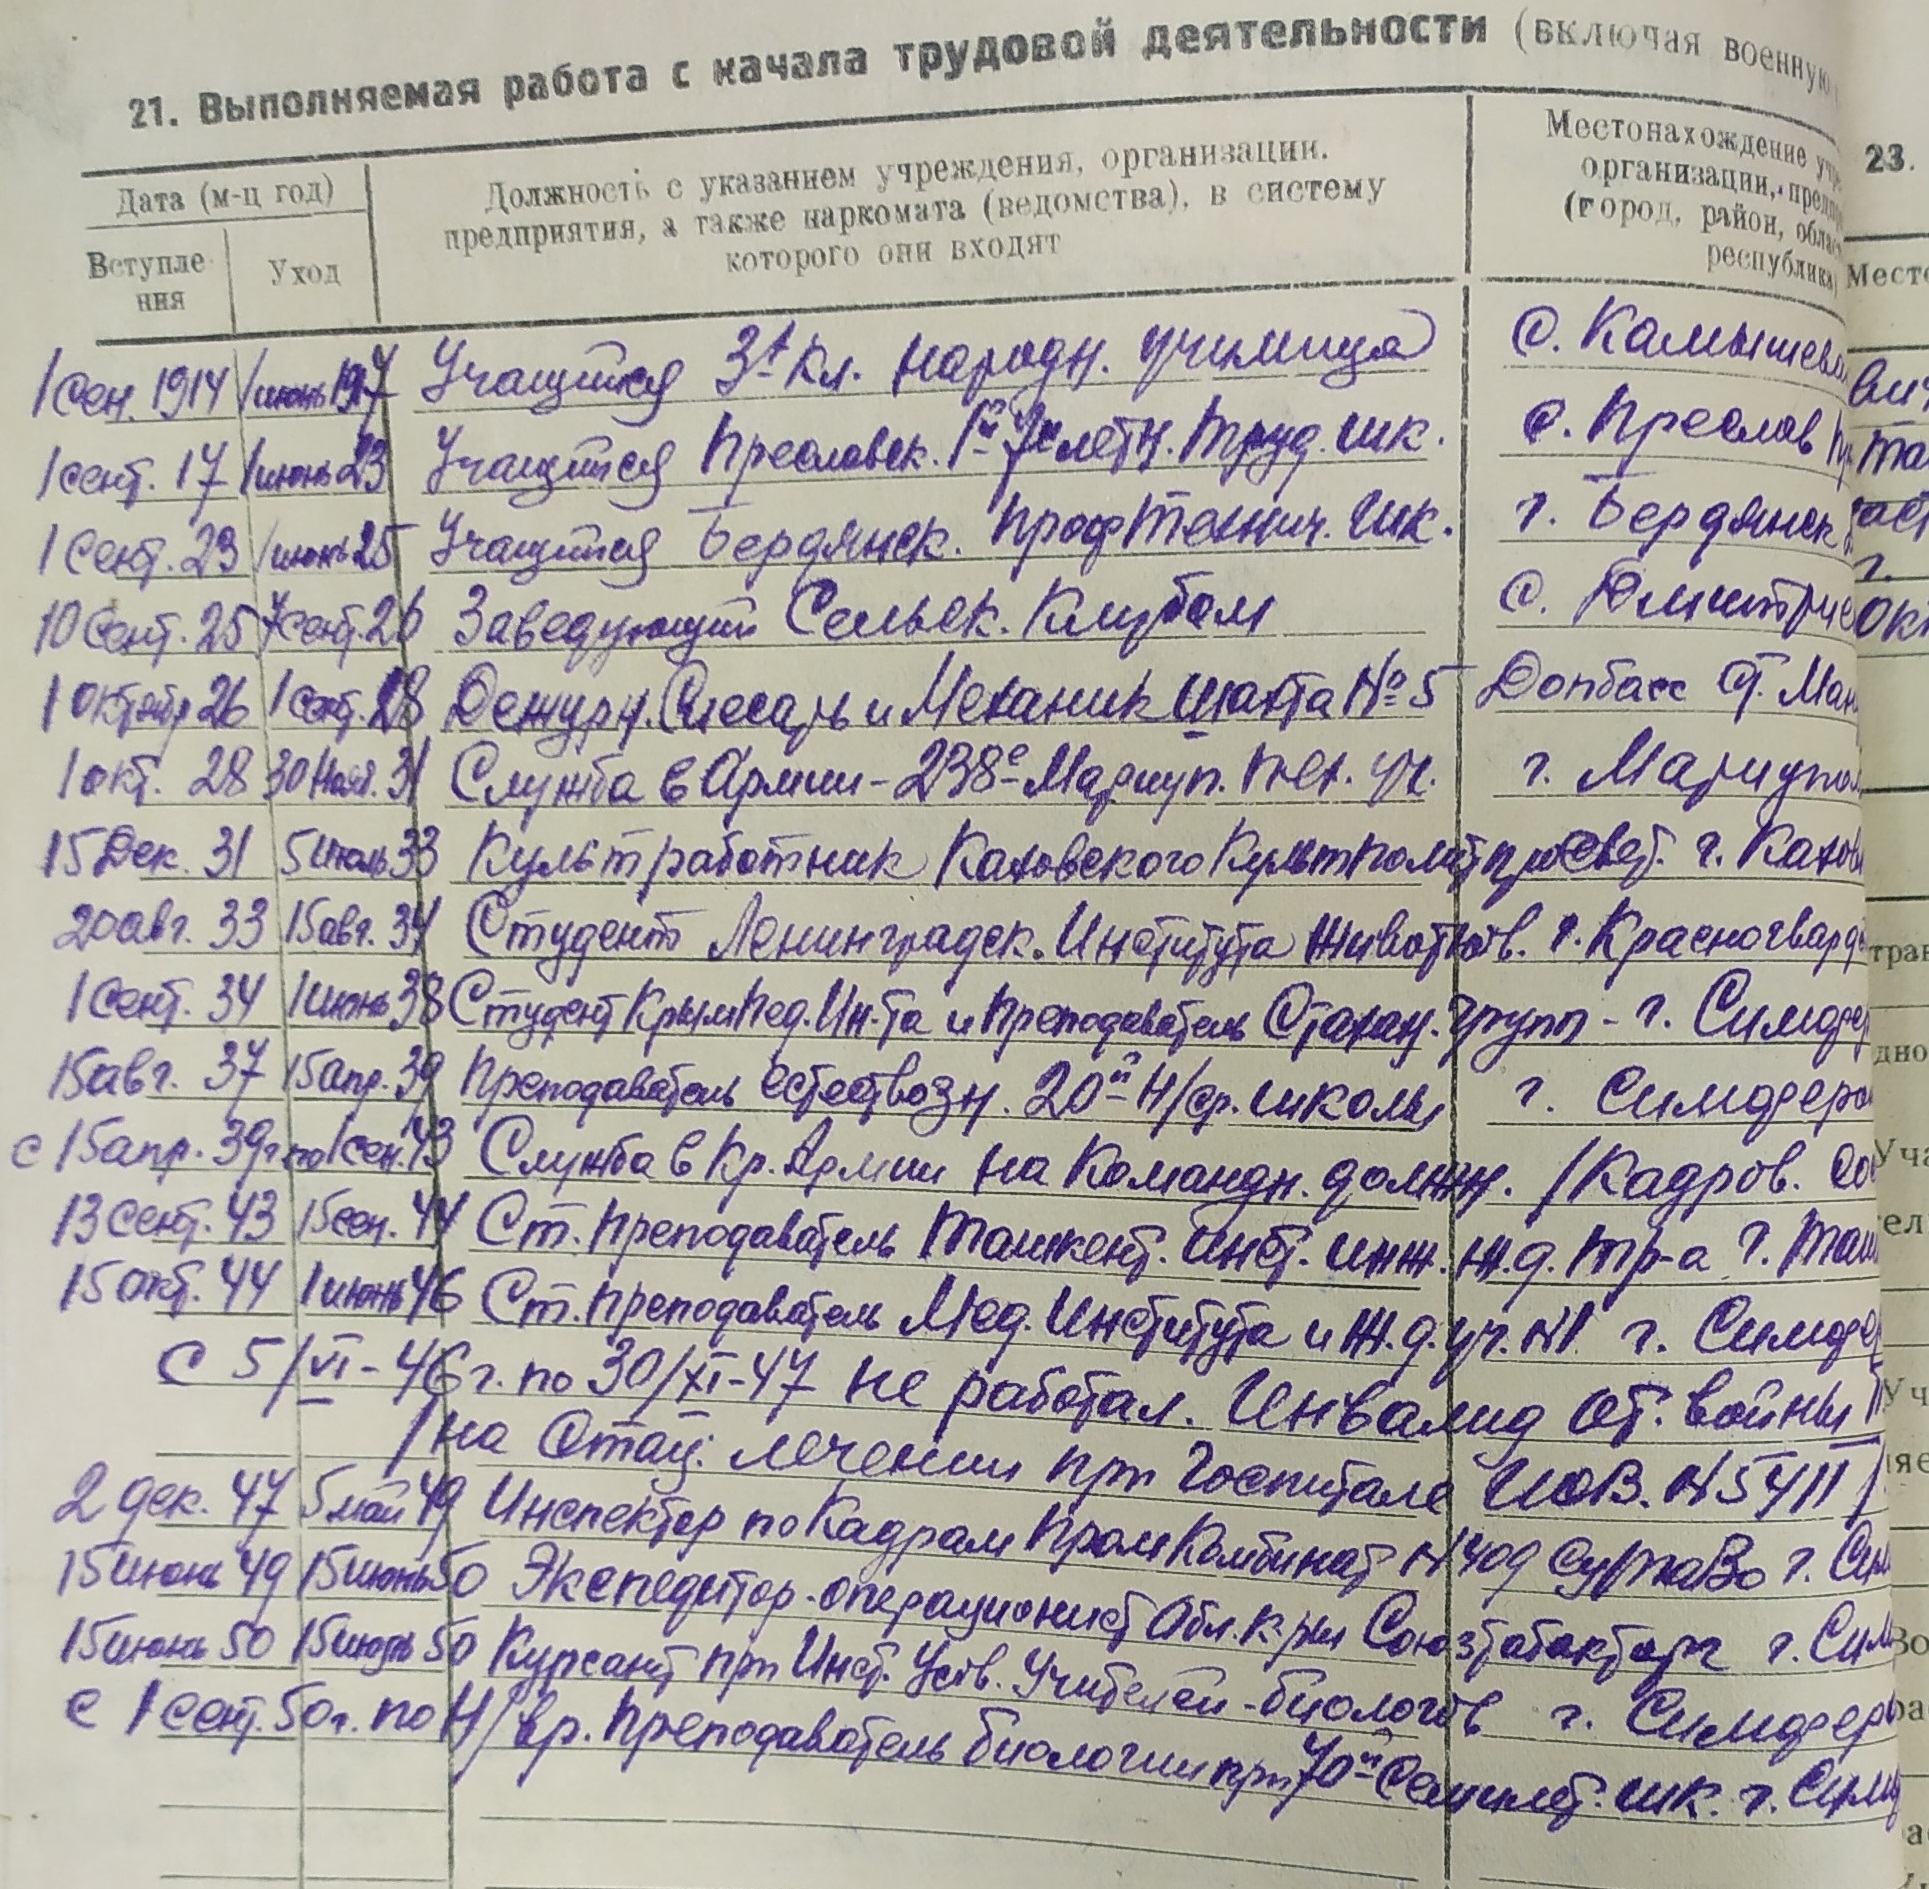 21. Выполняемая работа с начала трудовой деятельности (включая военную
Дата (м-ц год)
Вступле-
ния
Уход
Должность с указанием учреждения, организации,
предприятия, а также наркомата (ведомства), в систему
которого они входят
Местонахождение учр
организации, предпр
(город, район, облас
республика
1 сен. 1914 1 июнь 1917 Учащийся 3х кл. народн. училища с. Камышев
1 сент. 17 1 июнь 23 Учащийся Преславск. 1й 7и летн. Труд. шк. с. Преслав
1 сент. 23 1 июнь 25 Учащийся Бердянск. ПрофТехнич. шк. г. Бердянск
10 сент. 25 7 сент. 26 Заведующий Сельск. Клубом с. Дмитрие
1 октября 26 1 сент. 28 Дежурн. Слесарь и Механик шахта № 5 Донбасс ст. Ман
1 окт. 28 30 Нояб. 31 Служба в Армии - 238й Мариуп. Пех. г. Мариупол
15 Дек. 31 5 июль 33 Культработник Каховского Культполитпросвет. г. Кахов
20 авг. 33 15 авг. 34 Студент Ленинградск. Института Животнов. г. Красногвард
1 сент. 34 1 июнь 38 Студент КрымПед.Ин-та и преподаватель Стахан. групп - г. Симфер
15 авг. 37 15 апр. 39 Преподаватель естествозн. 20й Н/ср. школы г. Симферо
с 15 апр. 39г. по 1 сен. 43 Служба в Кр. Армии на командн. должн. /Кадров. сос
13 сент. 43 15 сен. 44 Ст. преподаватель Ташкент. Инст. инж. ж.д. тр-а г. Таш
15 окт. 44 1 июнь 46 Ст. преподаватель Мед. Института и ж.д. уч. №1 г. Симфе
с 5/VI-46г. по 30/XI-47 не работал. Инвалид От. войны
/на стац. лечении при Госпитале ИОВ. N5411/
2 дек. 47 5 май 49 Инспектор по Кадрам ПромКомбинат N409 г. Сим
15 июнь 49 15 июнь 50 Экспедитор-операционист Обл. к-ры Союзтабакторг г. Сим
15 июнь 50 15 июль 50 Курсант при Инст. Усов. Учителей-биологов г. Симфер
с 1 сент. 50г. по Н/вр. преподаватель биологии при 70й Семилет. шк. г. Симф
23.
Место